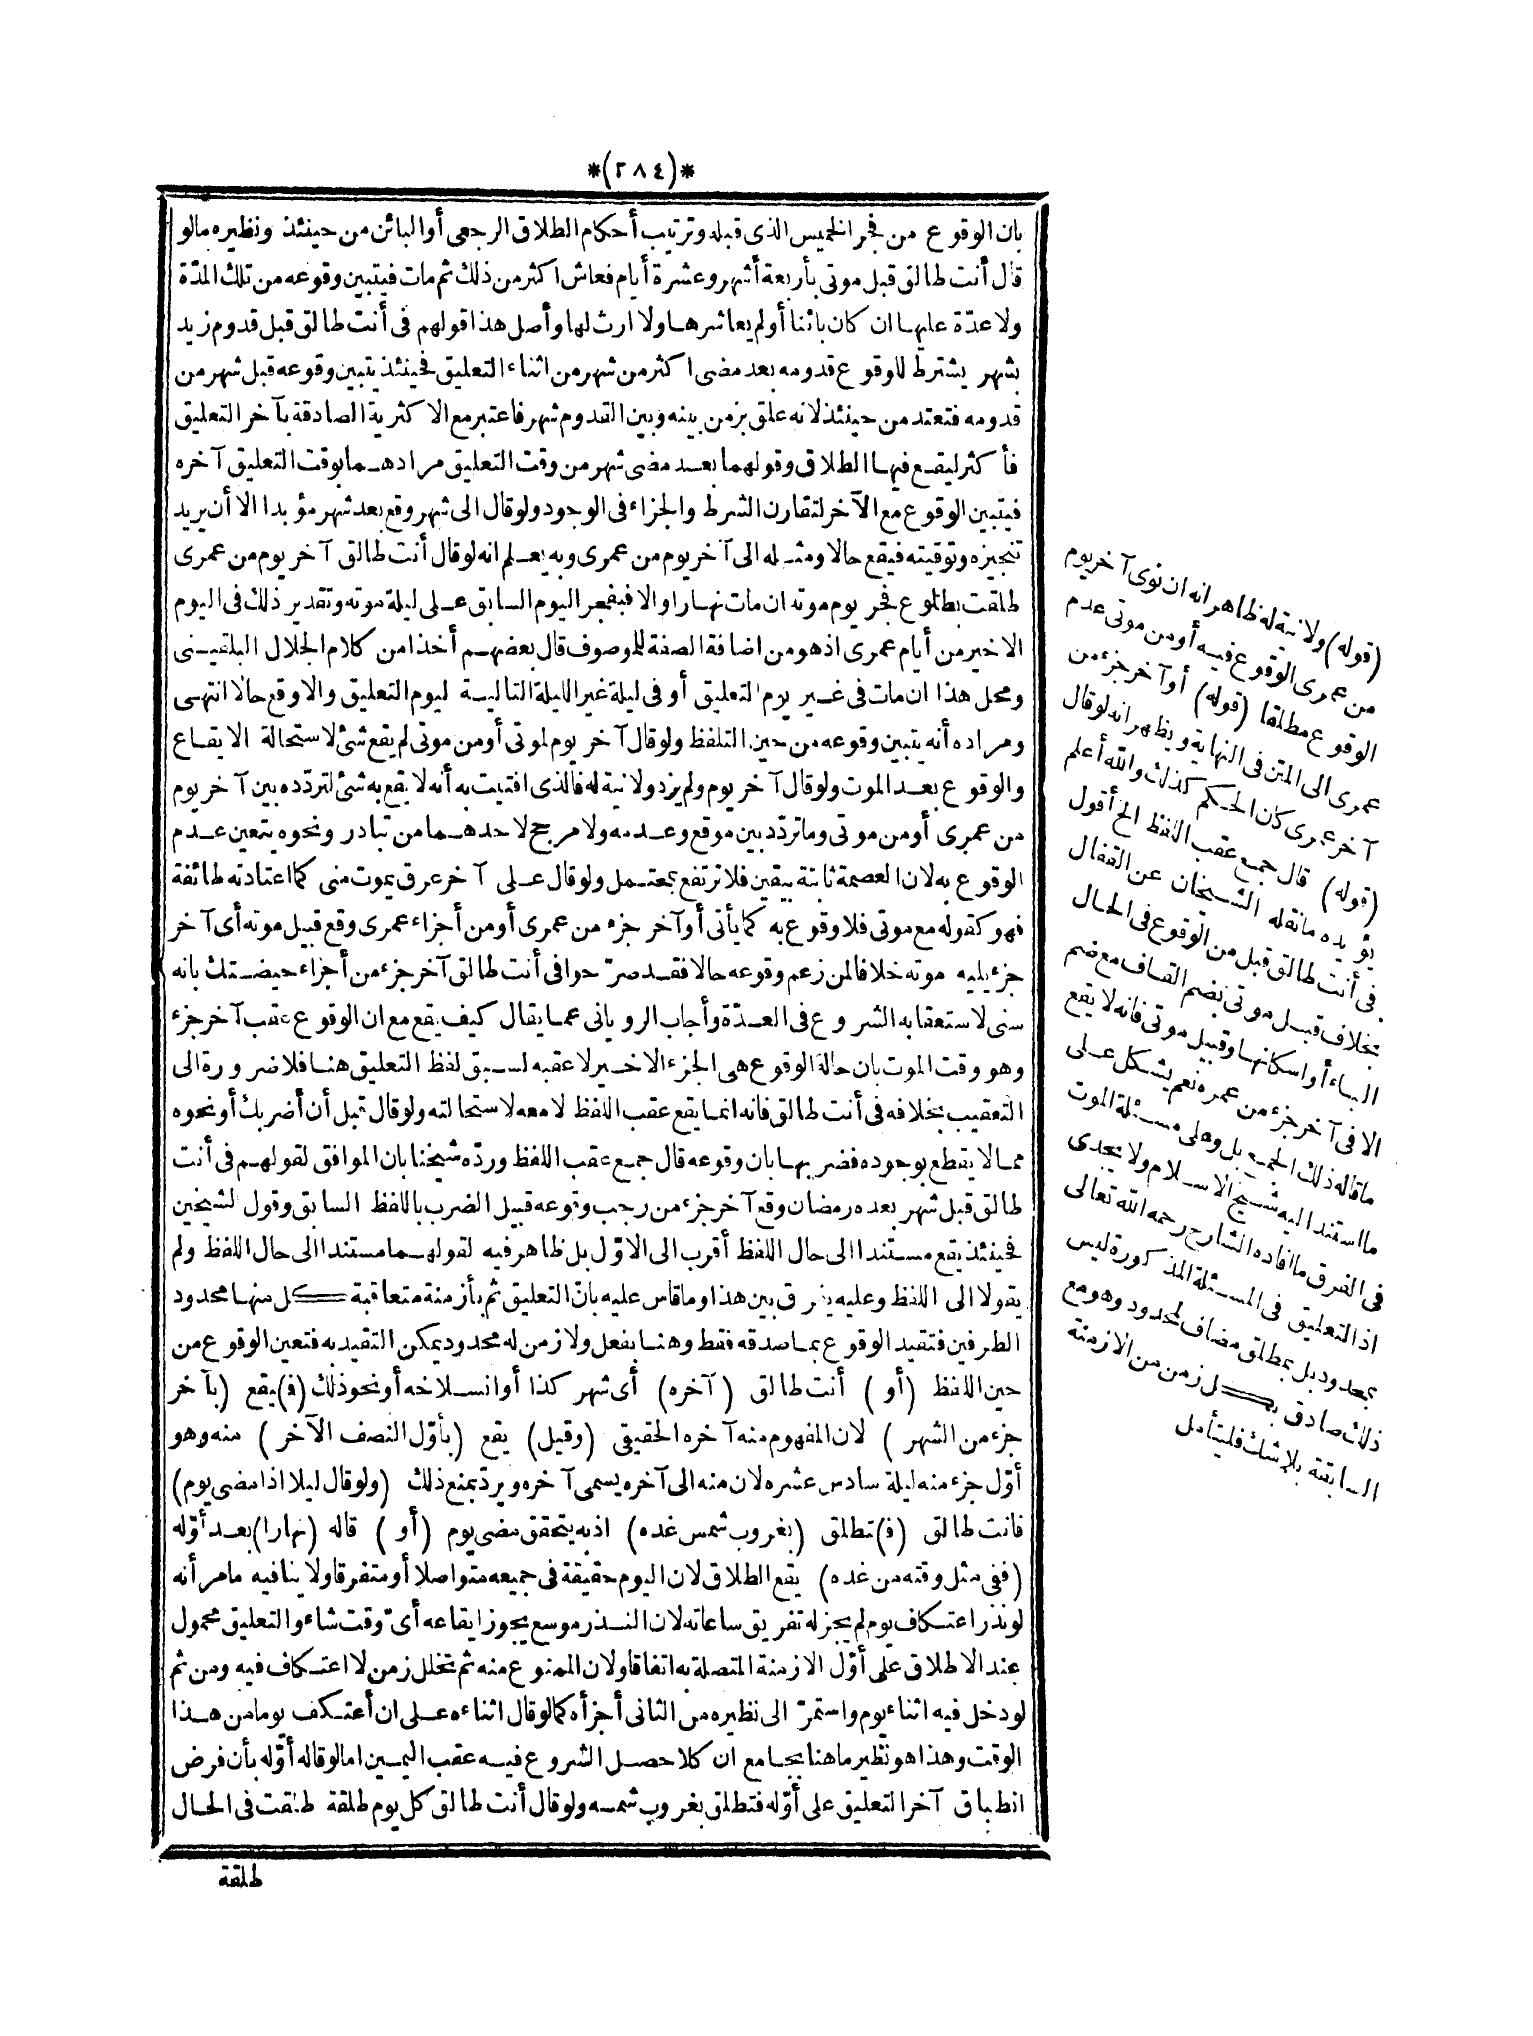 *(٢٨٤)*
بان الوقوع من فجر الخميس الذى قبله وترتيب أحكام الطلاق الرجعى أو البائن من حينئذ ونظيره ما لو
قال أنت طالق قبل موتى بأربعة أشهر وعشرة أيام فعاش اكثر من ذلك ثم مات فيتبين وقوعه من تلك المدّة
ولا عدّة عليها ان كان بائنا أو لم يعاشرها ولا ارث لها وأصل هذا قولهم فى أنت طالق قبل قدوم زيد
بشهر يشترط للوقوع قدومه بعد مضى اكثر من شهر من اثناء التعليق فحينئذ يتبين وقوعه قبل شهر من
قدومه فتعتد من حينئذ لانه علق بزمن بينه وبين القدوم شهر فاعتبر مع الاكثرية الصادقة بآخر التعليق
فأكثر ليقع فيها الطلاق وقولهما بعد مضى شهر من وقت التعليق مرادهما بوقت التعليق آخره
فيتبين الوقوع مع الآخر لتقارن الشرط والجزاء فى الوجود ولو قال الى شهر وقع بعد شهر مؤبدا الا أن يريد
تنجيزه وتوقيته فيقع حالا ومثله الى آخر يوم من عمرى وبه يعلم انه لو قال أنت طالق آخر يوم من عمرى
طلقت بطلوع فجر يوم موته ان مات نهارا والا فبفجر اليوم السابق على ليلة موته وتقدير ذلك فى اليوم
الاخير من أيام عمرى اذ هو من اضافة الصفة للموصوف قال بعضهم أخذا من كلام الجلال البلقينى
ومحل هذا ان مات فى غير يوم التعليق أو فى ليلة غير الليلة التالية ليوم التعليق والا وقع حالا انتهى
ومراده أنه يتبين وقوعه من حين التلفظ ولو قال آخر يوم لموتى أو من موتى لم يقع شئ لاستحالة الايقاع
والوقوع بعد الموت ولو قال آخر يوم ولم يزد ولا نية له فالذى افتيت به أنه لا يقع به شئ لتردّده بين آخر يوم
من عمرى أو من موتى وما تردّد بين موقع وعدمه ولا مرجح لاحدهما من تبادر ونحوه يتعين عدم
الوقوع به لان العصمة ثابتة بيقين فلا ترتفع بمحتمل ولو قال على آخر عرق يموت منى كما اعتادته طائفة
فهو كقوله مع موتى فلا وقوع به كما يأتى أو آخر جزء من عمرى أو من أجزاء عمرى وقع قبيل موته أى آخر
جزء يليه موته خلافا لمن زعم وقوعه حالا فقد صرّحوا فى أنت طالق آخر جزء من أجزاء حيضتك بانه
سنى لاستعقابه الشروع فى العدّة وأجاب الرويانى عما يقال كيف يقع مع ان الوقوع عقب آخر جزء
وهو وقت الموت بان حالة الوقوع هى الجزء الاخير لا عقبه لسبق لفظ التعليق هنا فلا ضرورة الى
التعقيب بخلافه فى أنت طالق فانه انما يقع عقب اللفظ لا معه لاستحالته ولو قال قبل أن أضربك أو نحوه
مما لا يقطع بوجوده فضربها بان وقوعه قال جمع عقب اللفظ وردّه شيخنا بان الموافق لقولهم فى أنت
طالق قبل شهر بعده رمضان وقع آخر جزء من رجب وقوعه قبيل الضرب باللفظ السابق وقول الشيخين
فحينئذ يقع مستندا الى حال اللفظ أقرب الى الاوّل بل ظاهر فيه لقولهما مستندا الى حال اللفظ ولم
يقولا الى اللفظ وعليه يفرق بين هذا وما قاس عليه بانّ التعليق ثم بأزمنة متعاقبة كل منها محدود
الطرفين فتقيد الوقوع بما صدقه فقط وهنا بفعل ولا زمن له محدود يمكن التقيد به فتعين الوقوع من
حين اللفظ (أو) أنت طالق (آخره) أى شهر كذا أو انسلاخه أو نحو ذلك (ف) يقع (بآخر
جزء من الشهر) لان المفهوم منه آخره الحقيقى (وقيل) يقع (بأوّل النصف الآخر) منه وهو
أوّل جزء منه ليلة سادس عشره لان منه الى آخره يسمى آخره ويردّ بمنع ذلك (ولو قال ليلا اذا مضى يوم)
فانت طالق (ف) تطلق (بغروب شمس غده) اذ به يتحقق مضى يوم (أو) قاله (نهارا) بعد أوّله
(ففى مثل وقته من غده) يقع الطلاق لان اليوم حقيقة فى جميعه متواصلا أو متفرقا ولا ينافيه ما مر أنه
لو نذر اعتكاف يوم لم يجز له تفريق ساعاته لان النذر موسع يجوز ايقاعه أىّ وقت شاء والتعليق محمول
عند الاطلاق على أوّل الازمنة المتصلة به اتفاقا ولان الممنوع منه ثم تخلل زمن لا اعتكاف فيه ومن ثم
لو دخل فيه اثناء يوم واستمرّ الى نظيره من الثانى أجزأه كما لو قال اثناءه على ان أعتكف يوما من هذا
الوقت وهذا هو نظير ما هنا بجامع ان كلا حصل الشروع فيه عقب اليمين اما لو قاله أوّله بأن فرض
انطباق آخر التعليق على أوّله فتطلق بغروب شمسه ولو قال أنت طالق كل يوم طلقة طلقت فى الحال
طلقة
(قوله) ولا نية له ظاهر انه ان نوى آخر يوم
من عمرى الوقوع فيه أو من موتى عدم
الوقوع مطلقا (قوله) أو آخر جزء من
عمرى الى المتن فى النهاية ويظهر انه لو قال
آخر عمرى كان الحكم كذلك والله أعلم
(قوله) قال جمع عقب اللفظ الخ أقول
يؤيده ما نقله الشيخان عن القفال
فى أنت طالق قبل من الوقوع فى الحال
بخلاف قبل موتى بضم القاف مع ضم
الباء أو اسكانها وقبيل موتى فانه لا يقع
الا فى آخر جزء من عمره نعم يشكل على
ما قاله ذلك الجمع بل وعلى مسئلة الموت
ما استند اليه شيخ الاسلام ولا يجدى
فى الفرق ما افاده الشارح رحمه الله تعالى
اذ التعليق فى المسئلة المذكورة ليس
بمحدود بل بمطلق مضاف لمحدود وهو مع
ذلك صادق بكل زمن من الازمنة
السابقة بلا شك فليتأمل